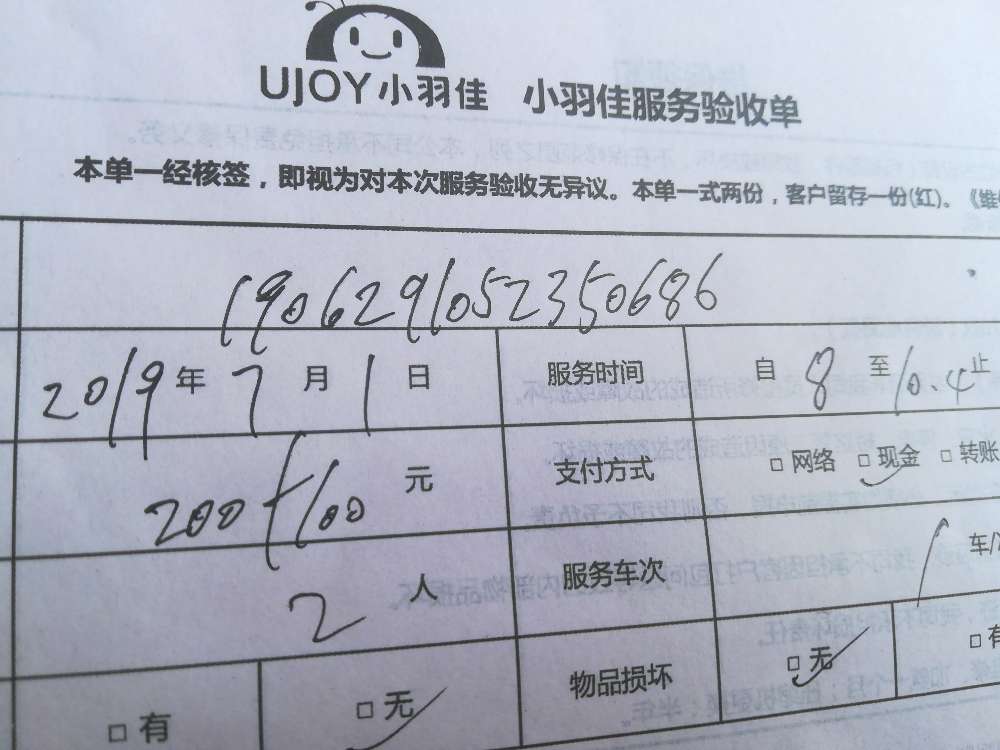 UJOY小羽佳 小羽佳服务验收单
本单一经核签，即视为对本次服务验收无异议。本单一式两份，客户留存一份(红)。《维
190629105235​0686
2019年7月1日 服务时间 自8至10.4止
200+100元 支付方式 □网络 □现金 □转账
2人 服务车次 1车/
□有 □无 物品损坏 □无 □有